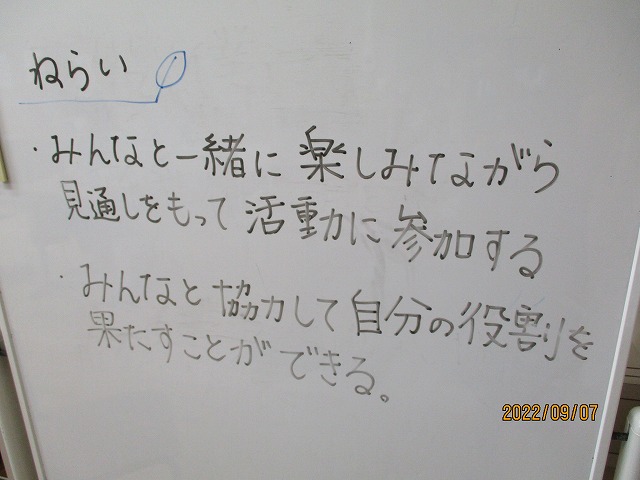 ねらい
・みんなと一緒に楽しみながら
見通しをもって活動に参加する
・みんなと協力して自分の役割を
果たすことができる。
2022/09/07